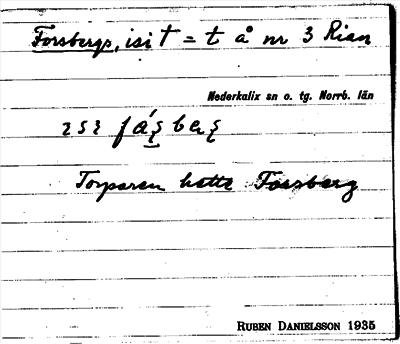 Forsbergs, isi t = t å nr 3 Rian
Nederkalix sn o. tg. Norrb. län
Torparen hette Forsberg
RUBEN DANIELSSON 1935